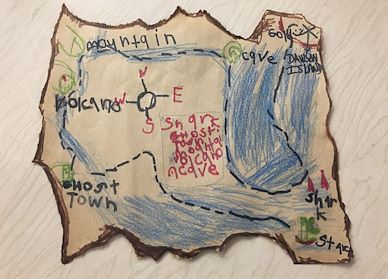 Gold X
DAWSON
ISLAND
mountain
cave
N
VOLCANO
W
E
S
Shark
GHOST
TOWN
mountain
VOLCANO
cave
GHOST
TOWN
shar
k
start